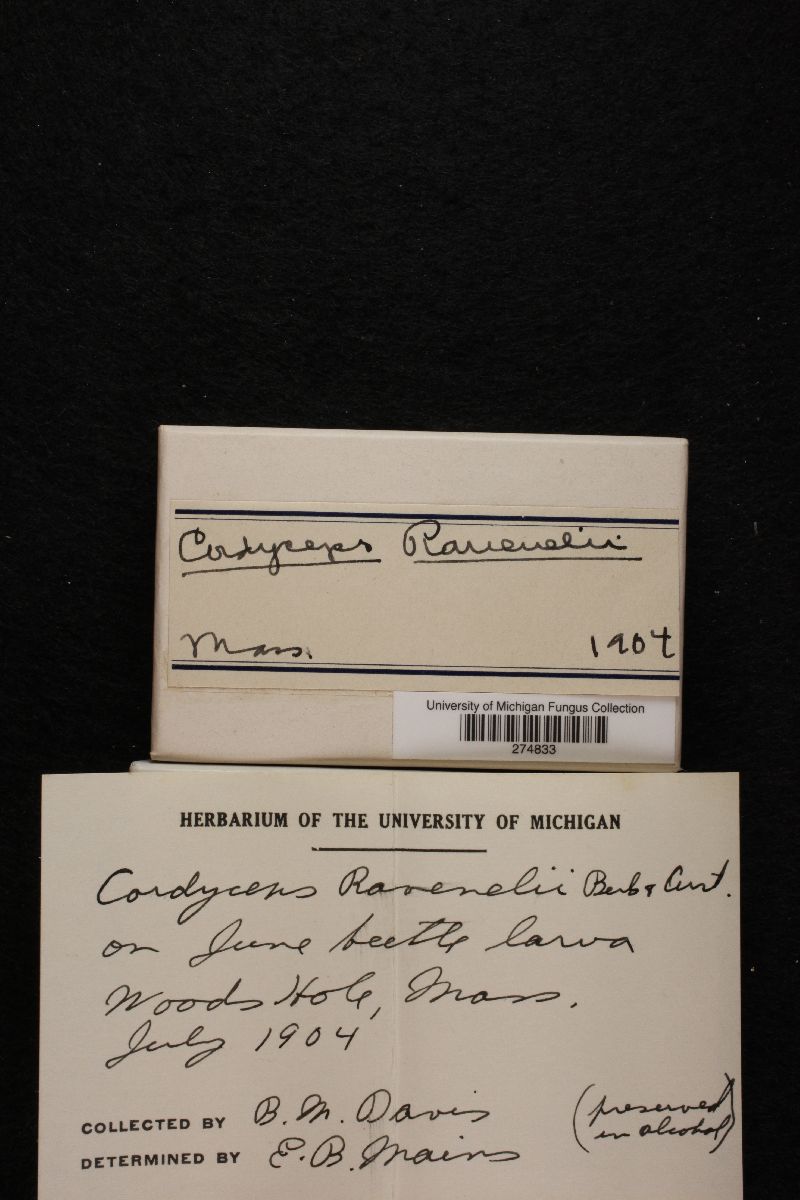 Cordyceps Ravenelii
Mass. 1904
University of Michigan Fungus Collection
274833
HERBARIUM OF THE UNIVERSITY OF MICHIGAN
Cordyceps Ravenelii Berk & Curt.
on June beetle larva
Woods Hole, Mass.
July 1904
COLLECTED BY B. M. Davis
DETERMINED BY E. B. Mains
(preserved
in alcohol)